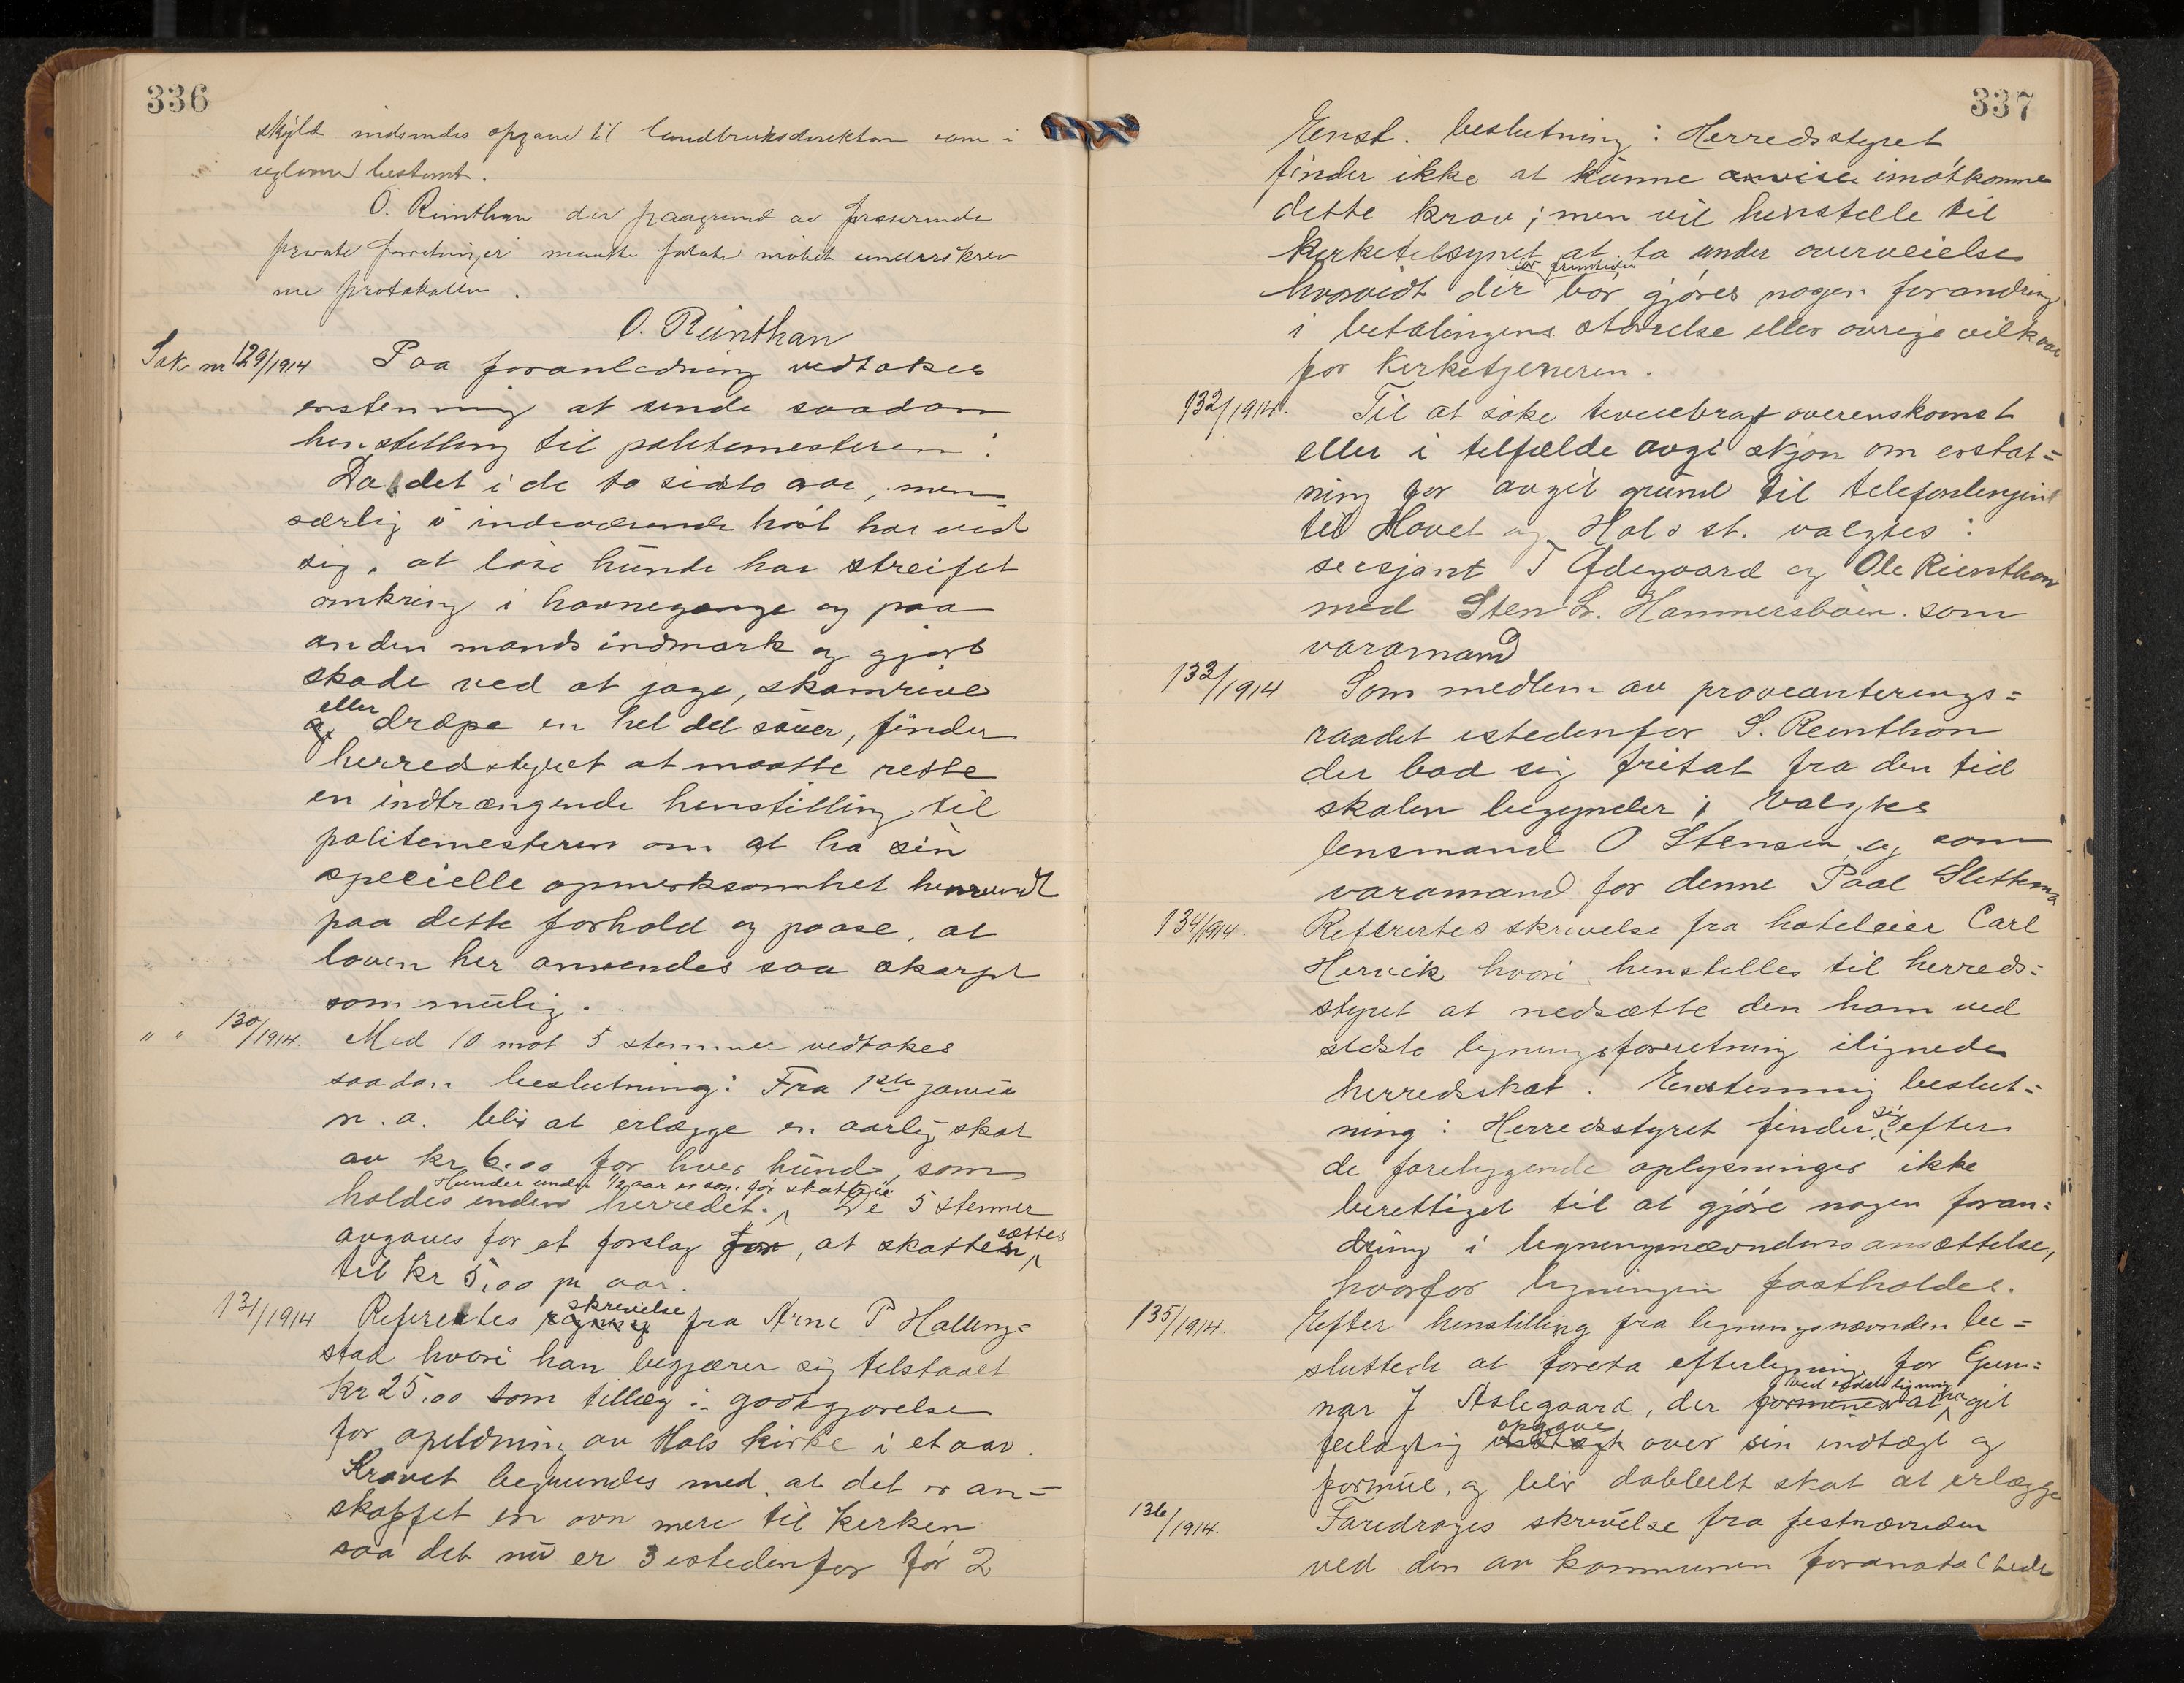 336
skyld indsendes opgave til landbruksdirektøren som i
reglerne bestemt.
O. Reinthon der paagrund av presserende
private forretninger maatte forlate møtet underskrev
nu protokollen.
O. Reinthon
Sak nr 129/1914 Paa foranledning vedtokes
enstemmig at sende saadan
henstilling til politimesteren:
Da det i de to sidste aar, men
særlig i indeværende høst har vist
sig, at løse hunde har streifet
omkring i havnegange og paa
anden mands indmark og gjort
skade ved at jage, skamrive
eller
og dræpe en hel del sauer, finder
herredsstyret at maatte rette
en indtrængende henstilling til
politimesteren om at ha sin
specielle opmerksomhet henvendt
paa dette forhold og paase, at
loven her anvendes saa skarpt
som mulig.
" " 130/1914. Med 10 mot 5 stemmer vedtokes
saadan beslutning: Fra 1ste januar
n. a. blir at erlægge en aarlig skat
av kr 6.00 for hver hund, som
Hunder under 1/2 aar er som før skattefri.
holdes inden herredet. De 5 stemmer
avgaves for et forslag for, at skatten sættes
til kr 5,00 pr aar.
131/1914 Refertes skrivelse fra Arne P Halling=
stad hvori han begjærer sig tilstaaet
kr 25.00 som tillæg i godtgjørelse
for opildning av Hols kirke i et aar.
Kravet begrundes med, at det er an=
skaffet en ovn mere til kirken
saa det nu er 3 istedenfor før 2
337
Enst. beslutning: Herredsstyret
finder ikke at kunne anvise imøtkomme
dette krav; men vil henstille til
Kirketilsynet at ta under overveielse
for fremtiden
hvorvidt der bør gjøres nogen forandring
i betalingens størrelse eller øvrige vilkaar
for Kirketjeneren.
132/1914. Til at søke tveiebragt overenskomst
eller i tilfælde avgi skjøn om erstat=
ning for avgit grund til telefonlinjen
til Hovet og Hols st. valgtes:
sersjant T Ødegaard og Ole Reinthon
med Sten L. Hammersbøen som
varamand
133/1914 Som medlem av provianterings=
raadet istedenfor S. Reinthon
der bad sig fritat fra den tid
skolen begynder; valgtes
lensmand O Stensen og som
varamand for denne Paal Slettemo
134/1914. Refertes skrivelse fra hoteleier Carl
Hervik hvori henstilles til herreds=
styret at nedsætte den ham ved
sidste ligningsforretning ilignede
herredsskat. Enstemmig beslut=
ning: Herredsstyret finder sig efter
de foreliggende oplysninger ikke
berettiget til at gjøre nogen foran=
dring i ligningsnævndens ansættelse,
hvorfor ligningen fastholdes.
135/1914. Efter henstilling fra ligningsnævnden be=
sluttedes at foreta efterligning for Gun=
ved sidste ligning
nar J Aslegaard, der formenes at ha git
opgave
feilagtig indtægt over sin indtægt og
formue, og blir dobbelt skat at erlægge
136/1914. Foredroges skrivelse fra festnævnden
ved den av kommunen foranstaltede